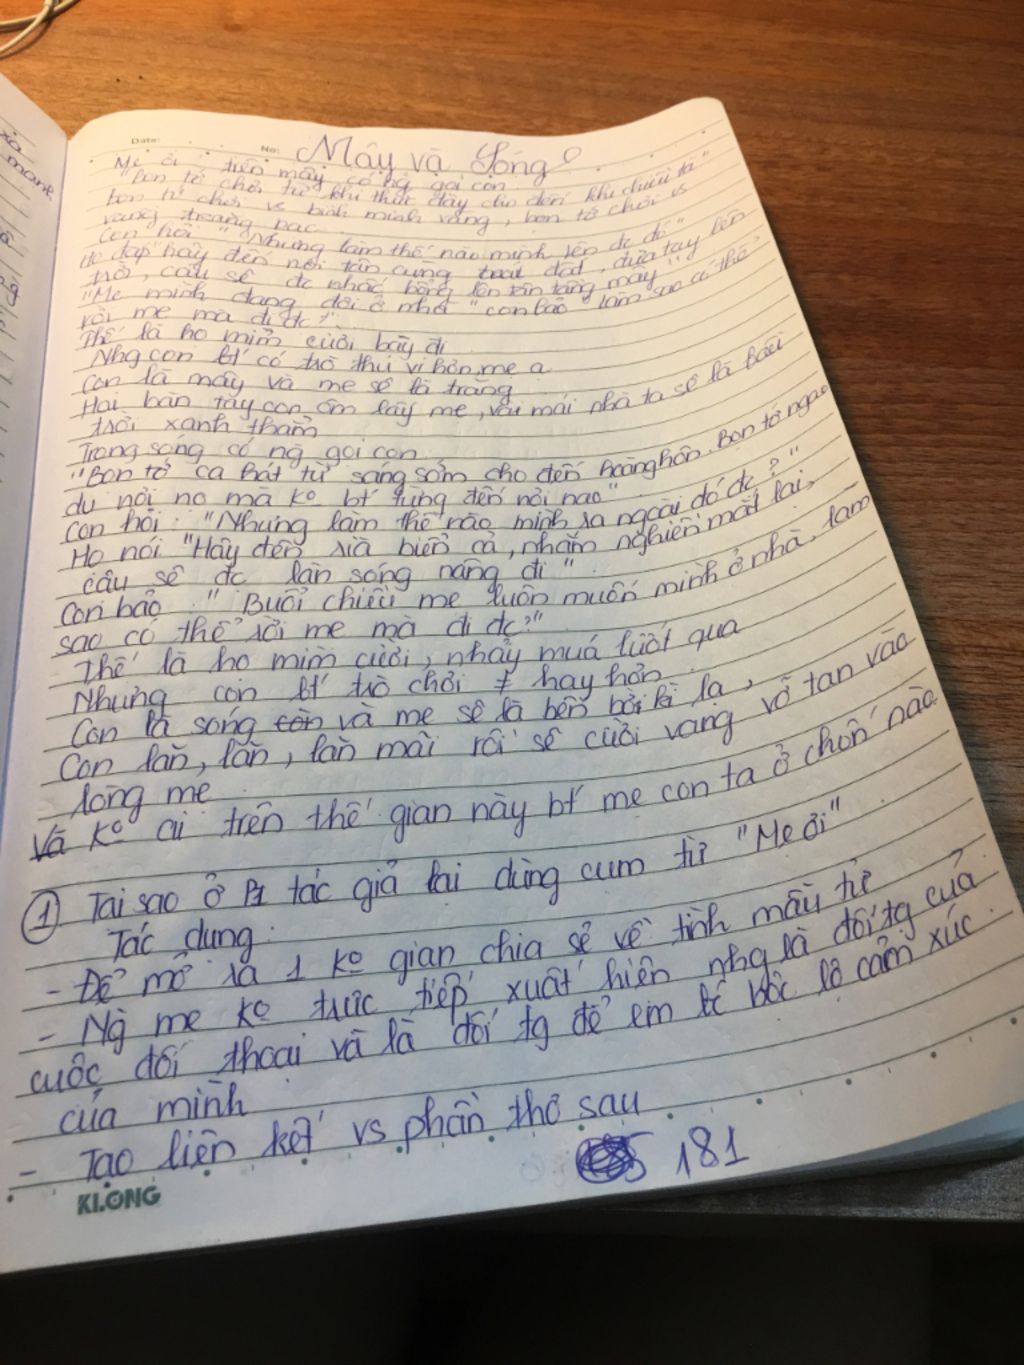 Date:
No:
Mây và Sóng
Mẹ ơi, trên mây có ng gọi con
"Bọn tớ chơi từ khi thức dậy cho đến khi chiều tà"
bọn tớ chơi vs bình minh vàng, bọn tớ chơi vs
vầng trăng bạc
Con hỏi: "Nhưng làm thế nào mình lên đc đó"
Họ đáp hãy đến nơi tận cùng trái đất, đưa tay lên
trời, cậu sẽ đc nhấc bổng lên tận tầng mây"
"Mẹ mình đang đợi ở nhà" con bảo "làm sao có thể
rời mẹ mà đi đc?"
Thế là họ mỉm cười bay đi
Nhg con bt có trò thú vị hơn, mẹ ạ
Con là mây và mẹ sẽ là trăng
Hai bàn tay con ôm lấy mẹ, và mái nhà ta sẽ là bầu
trời xanh thẳm
Trong sóng có ng gọi con
"Bọn tớ ca hát từ sáng sớm cho đến hoàng hôn. Bọn tớ ngao
du nơi nọ mà ko bt từng đến nơi nao"
Con hỏi: "Nhưng làm thế nào mình ra ngoài đó đc?"
Họ nói "Hãy đến rìa biển cả, nhắm nghiền mắt lại,
cậu sẽ đc làn sóng nâng đi"
Con bảo: "Buổi chiều mẹ luôn muốn mình ở nhà, làm
sao có thể rời mẹ mà đi đc?"
Thế là họ mỉm cười, nhảy múa lướt qua
Nhưng con bt trò chơi ≠ hay hơn
Con là sóng và mẹ sẽ là bến bờ kì lạ,
Con lăn, lăn, lăn mãi rồi sẽ cười vang vỡ tan vào
lòng mẹ
Và ko ai trên thế gian này bt mẹ con ta ở chốn nào
① Tại sao ở P1 tác giả lại dùng cụm từ "Mẹ ơi"
Tác dụng:
- Để mở ra 1 ko gian chia sẻ về tình mẫu tử
- Ng mẹ ko trực tiếp xuất hiện nhg là đối tg của
cuộc đối thoại và là đối tg để em bé bộc lộ cảm xúc
của mình
- Tạo liên kết vs phần thơ sau
181
KLONG